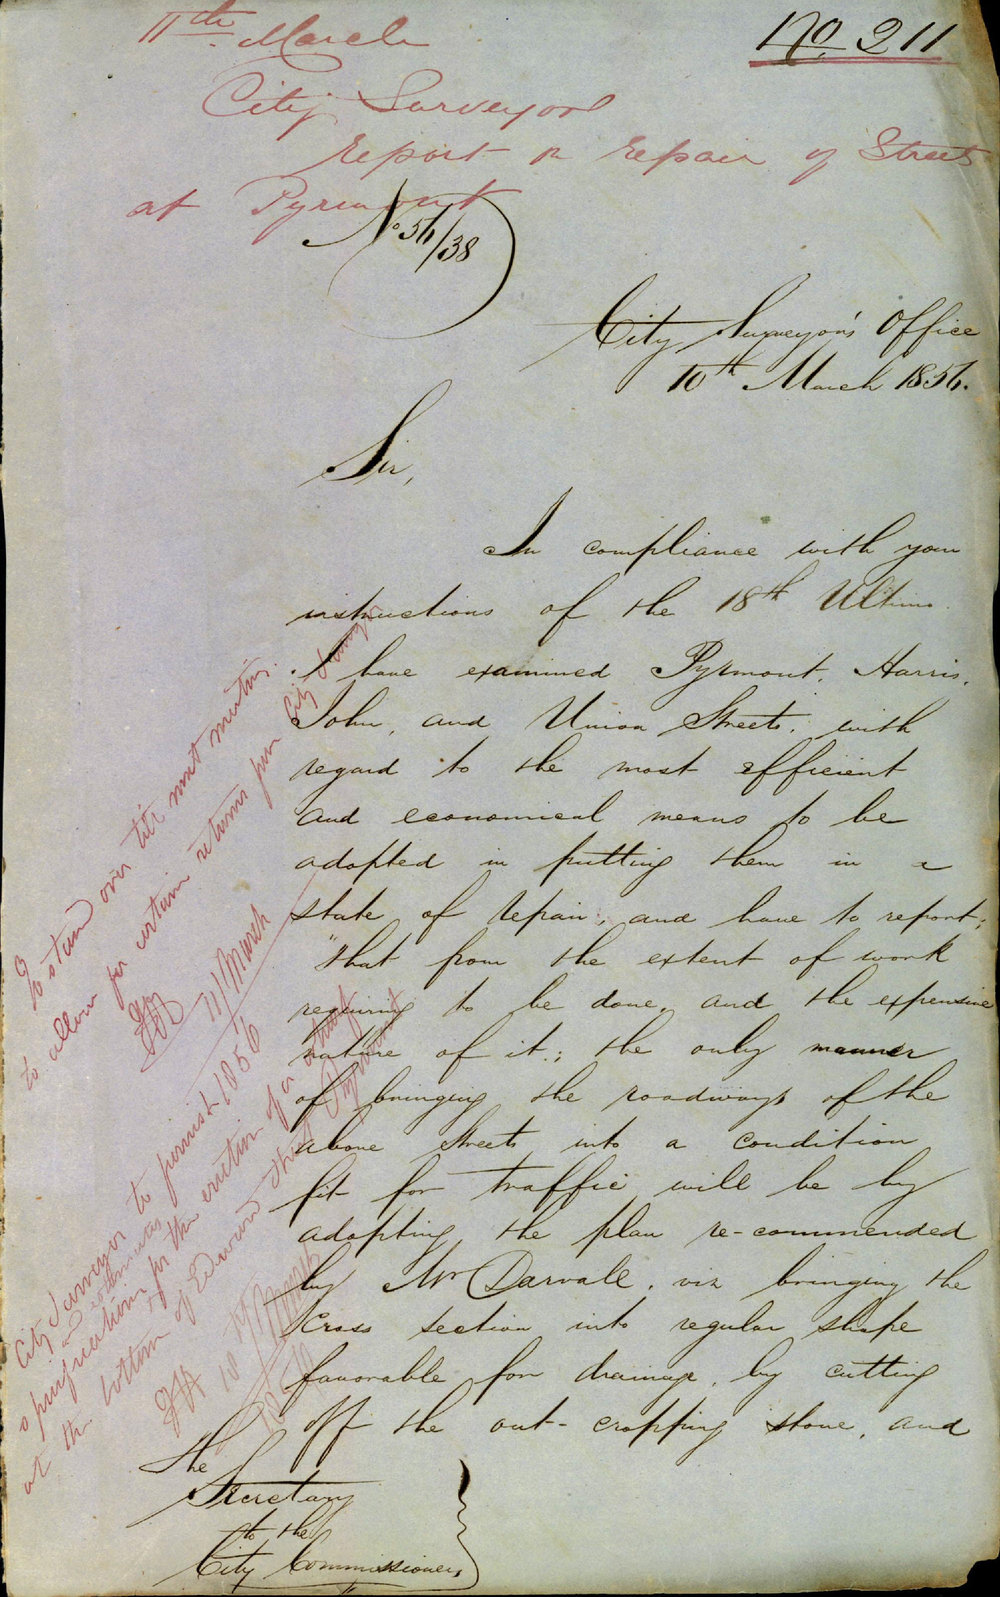 11th March
No. 211
City Surveyor
Report on repair of Streets
at Pyrmont
No 56/38
City Surveyor's Office
10th March 1856.
Sir,
In compliance with your
instructions of the 18th Ultimo
I have examined Pyrmont, Harris,
John, and Union Streets, with
regard to the most efficient
and economical means to be
adopted in putting them in a
state of repair, and have to report;
"that from the extent of work
requiring to be done, and the expensive
nature of it; the only manner
of bringing the roadways of the
above Streets into a condition
fit for traffic will be by
adopting the plan re-commended
by Mr Darvall, viz bringing the
cross section into regular shape
favorable for drainage, by cutting
off the out-cropping stone, and
The
Secretary
to the
City Commissioners
To stand over till next meeting
to allow for certain returns from City Surveyor
11/March
1856
City Surveyor to furnish
specifications & estimates
for the erection of a wharf
at the bottom of Edward Street Pyrmont
10 March